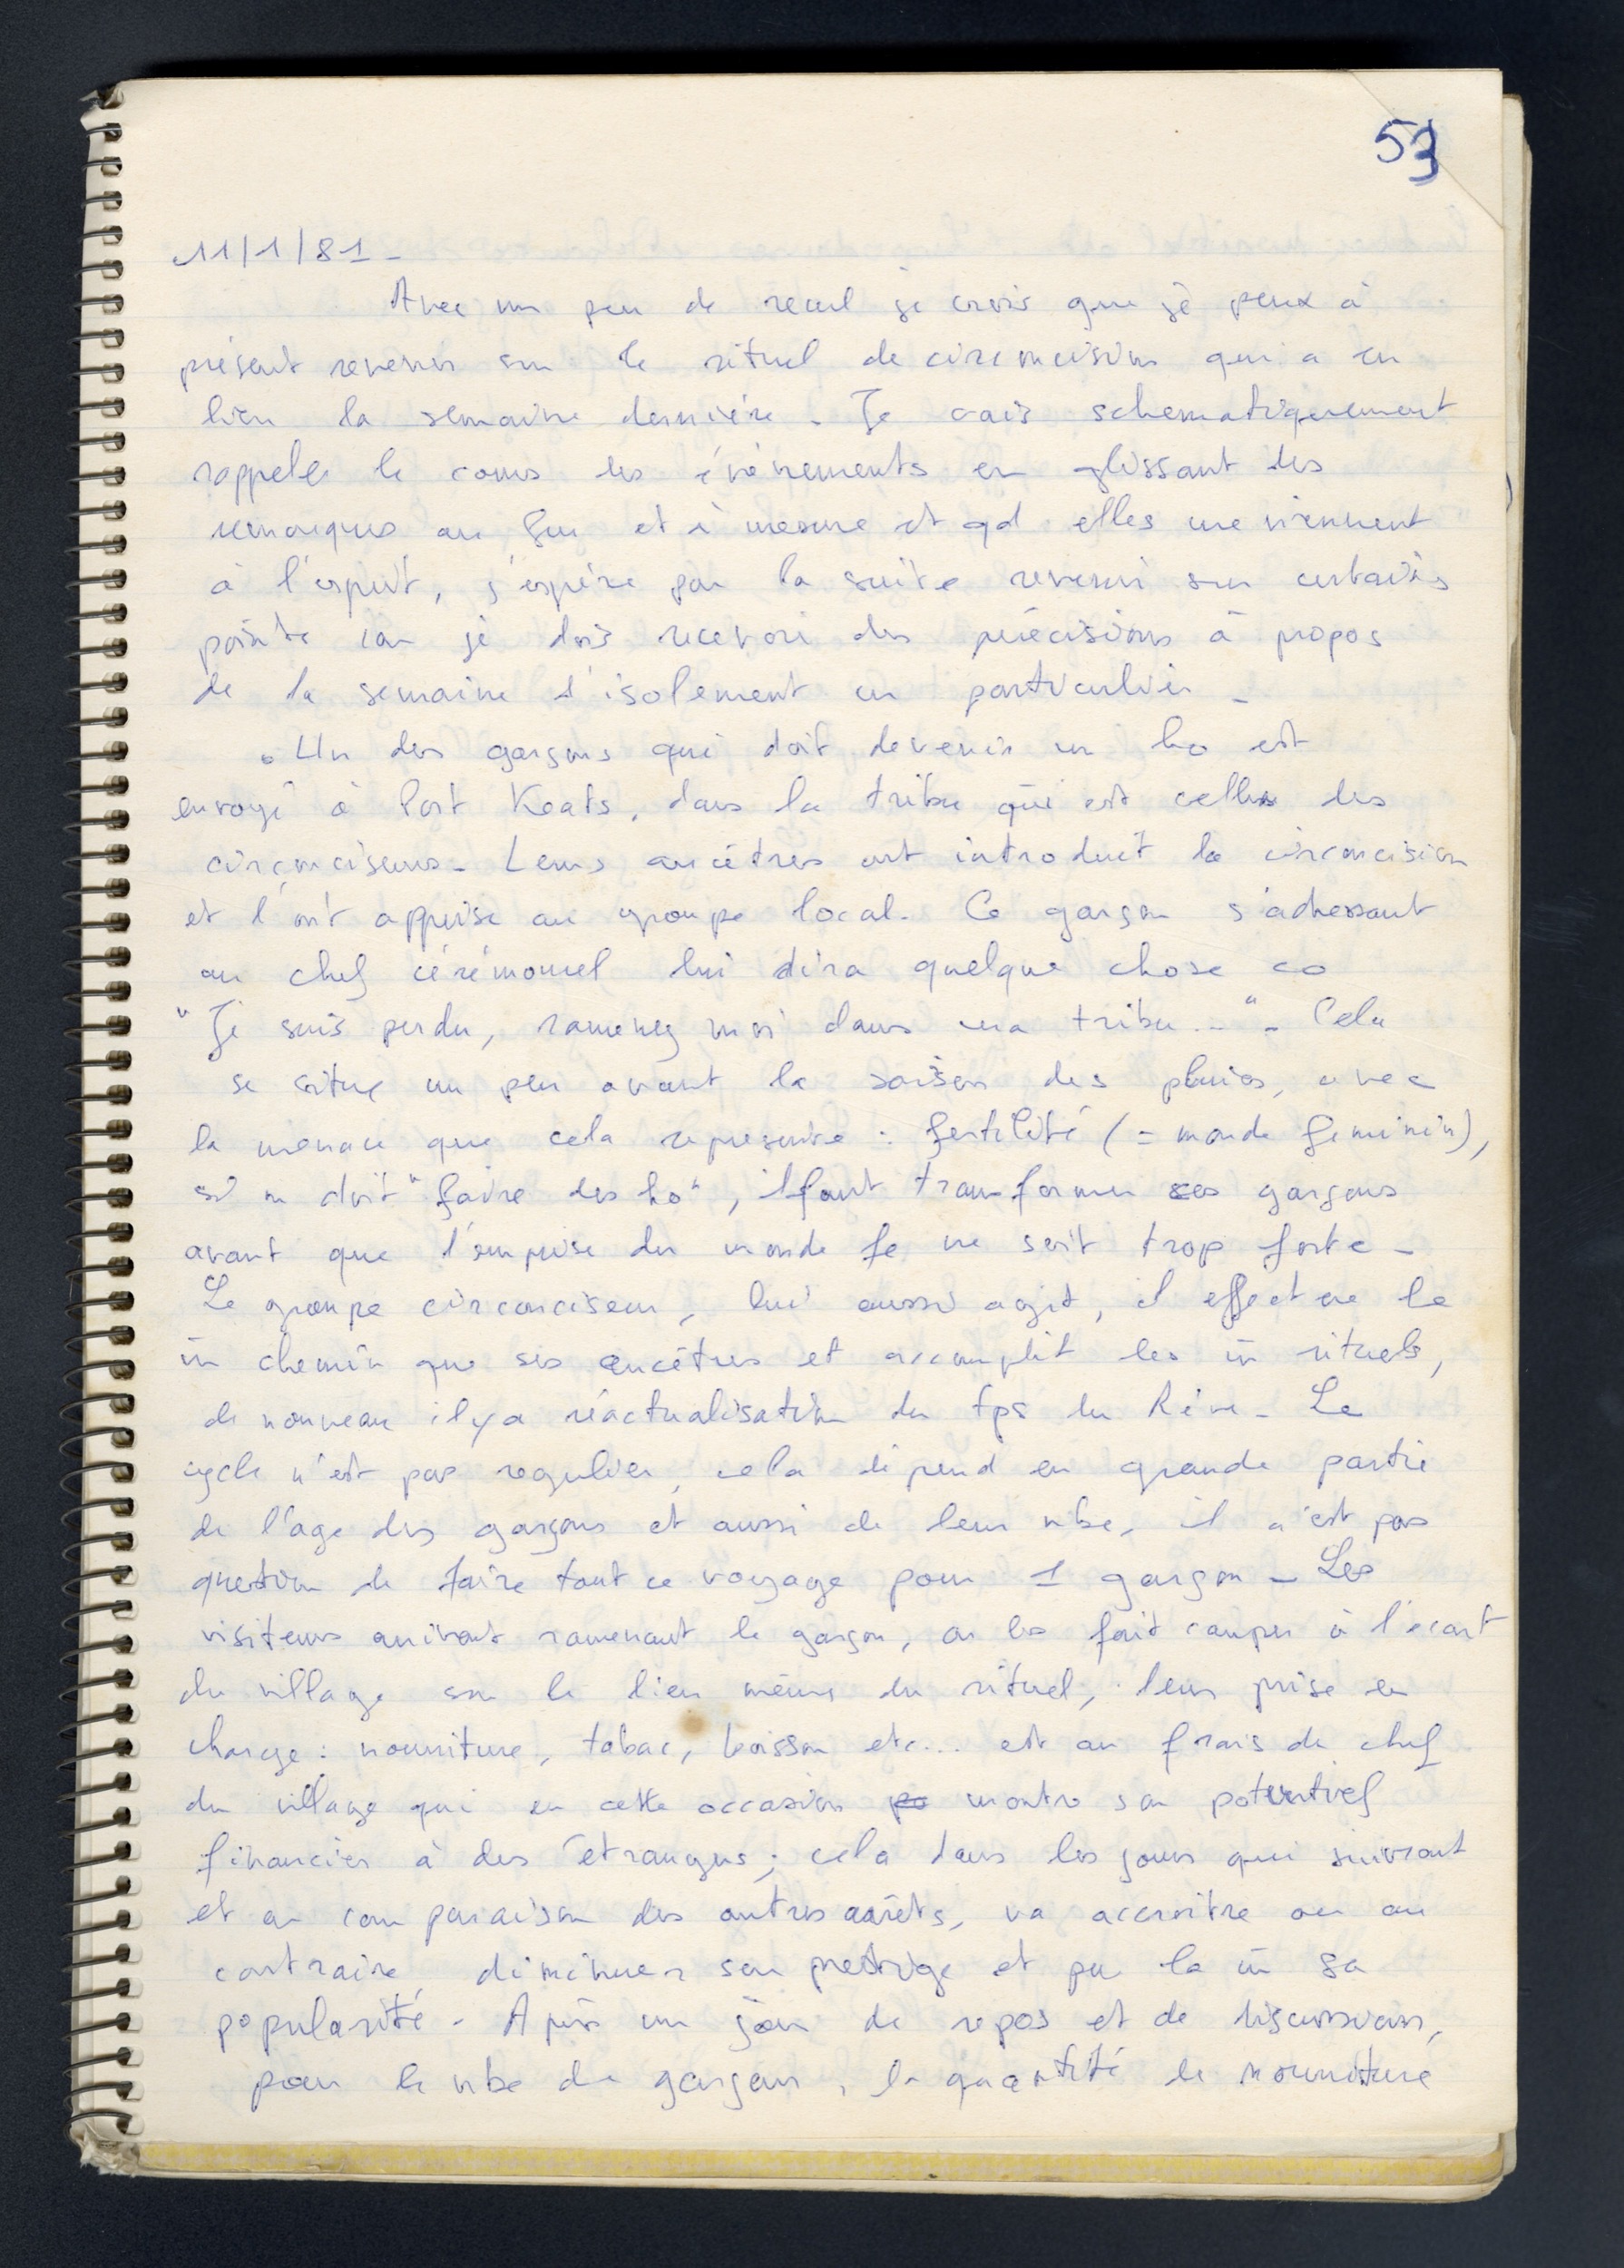 53
11/1/81 -
Avec un peu de recul je crois que je peux à
présent revenir sur le rituel de circoncision qui a eu
lieu la semaine dernière. Je vais schematiquement
rappeler le cours des évènements en glissant des
remarques au fur et à mesure et qd elles me viennent
à l'esprit, j'espère par la suite revenir sur certains
points car je dois recevoir des précisions à propos
de la semaine d'isolement en particulier -
. Un des garçons qui doit devenir un ho est
envoyé à Port Keats, dans la tribu qui est celle des
circonciseurs - Leurs ancêtres ont introduit la circoncision
et l'ont apprise au groupe local. Ce garçon s'adressant
au chef cérémoniel lui dira quelque chose co
"Je suis perdu, ramenez moi dans ma tribu..." - Cela
se situe un peu avant la saison des pluies, avec
la menace que cela represente : fertilité (= monde feminin),
si on doit "faire des ho", il faut transformer ces garçons
avant que l'emprise du monde fe ne soit trop forte -
Le groupe circonciseur, lui aussi agit, il effectue le
m̄ chemin que ses ancêtres et accomplit les m̄ rituels,
de nouveau il y a réactualisation du tps du Rêve - Le
cycle n'est pas regulier, cela dépend en grande partie
de l'age des garçons et aussi de leur nbe, il n'est pas
question de faire tout ce voyage pour 1 garçon - Les
visiteurs arrivent ramenant le garçon, on les fait camper à l'écart
du village sur le lieu même du rituel, leur prise en
charge : nourriture, tabac, boisson etc... est au frais du chef
du village qui en cette occasion montre son potentiel
financier à des étrangers ; cela dans les jours qui suivront
et en comparaison des autres arrêts, va accroitre ou au
contraire diminuer son prestige et par la m̄ sa
popularité - Après un jour de repos et de discussions,
pour le nbe de garçons, la quantité de nourriture